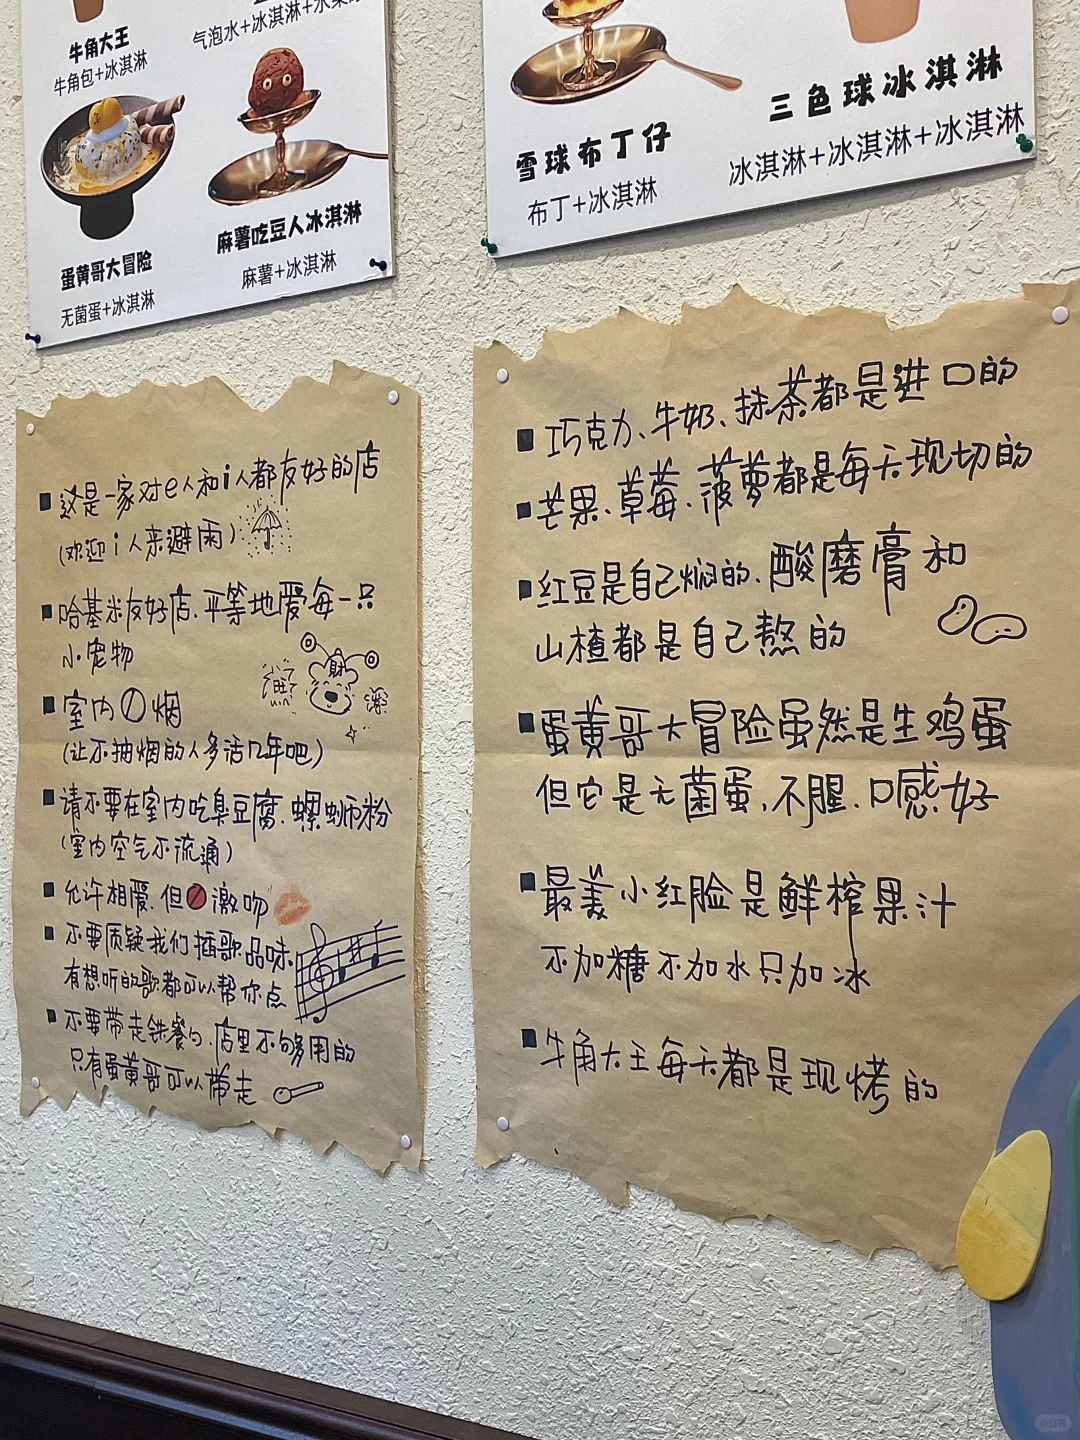 牛角大王
牛角包+冰淇淋
气泡水+冰淇淋+水果
蛋黄哥大冒险
无菌蛋+冰淇淋
麻薯吃豆人冰淇淋
麻薯+冰淇淋
雪球布丁仔
布丁+冰淇淋
三色球冰淇淋
冰淇淋+冰淇淋+冰淇淋
这是一家对e人和i人都友好的店
(欢迎i人来避雨)
哈基米友好店.平等地爱每一只
小宠物
旺
财
室内 烟
(让不抽烟的人多活几年吧)
请不要在室内吃臭豆腐.螺蛳粉
(室内空气不流通)
允许相爱.但 激吻
不要质疑我们插歌品味.
有想听的歌都可以帮你点
不要带走铁餐勺.店里不够用的
只有蛋黄哥可以带走
巧克力、牛奶、抹茶都是进口的
芒果、草莓、菠萝都是每天现切的
红豆是自己焖的.酸磨膏和
山楂都是自己熬的
蛋黄哥大冒险虽然是生鸡蛋
但它是无菌蛋,不腥.口感好
最美小红脸是鲜榨果汁
不加糖不加水只加冰
牛角大王每天都是现烤的
小红书